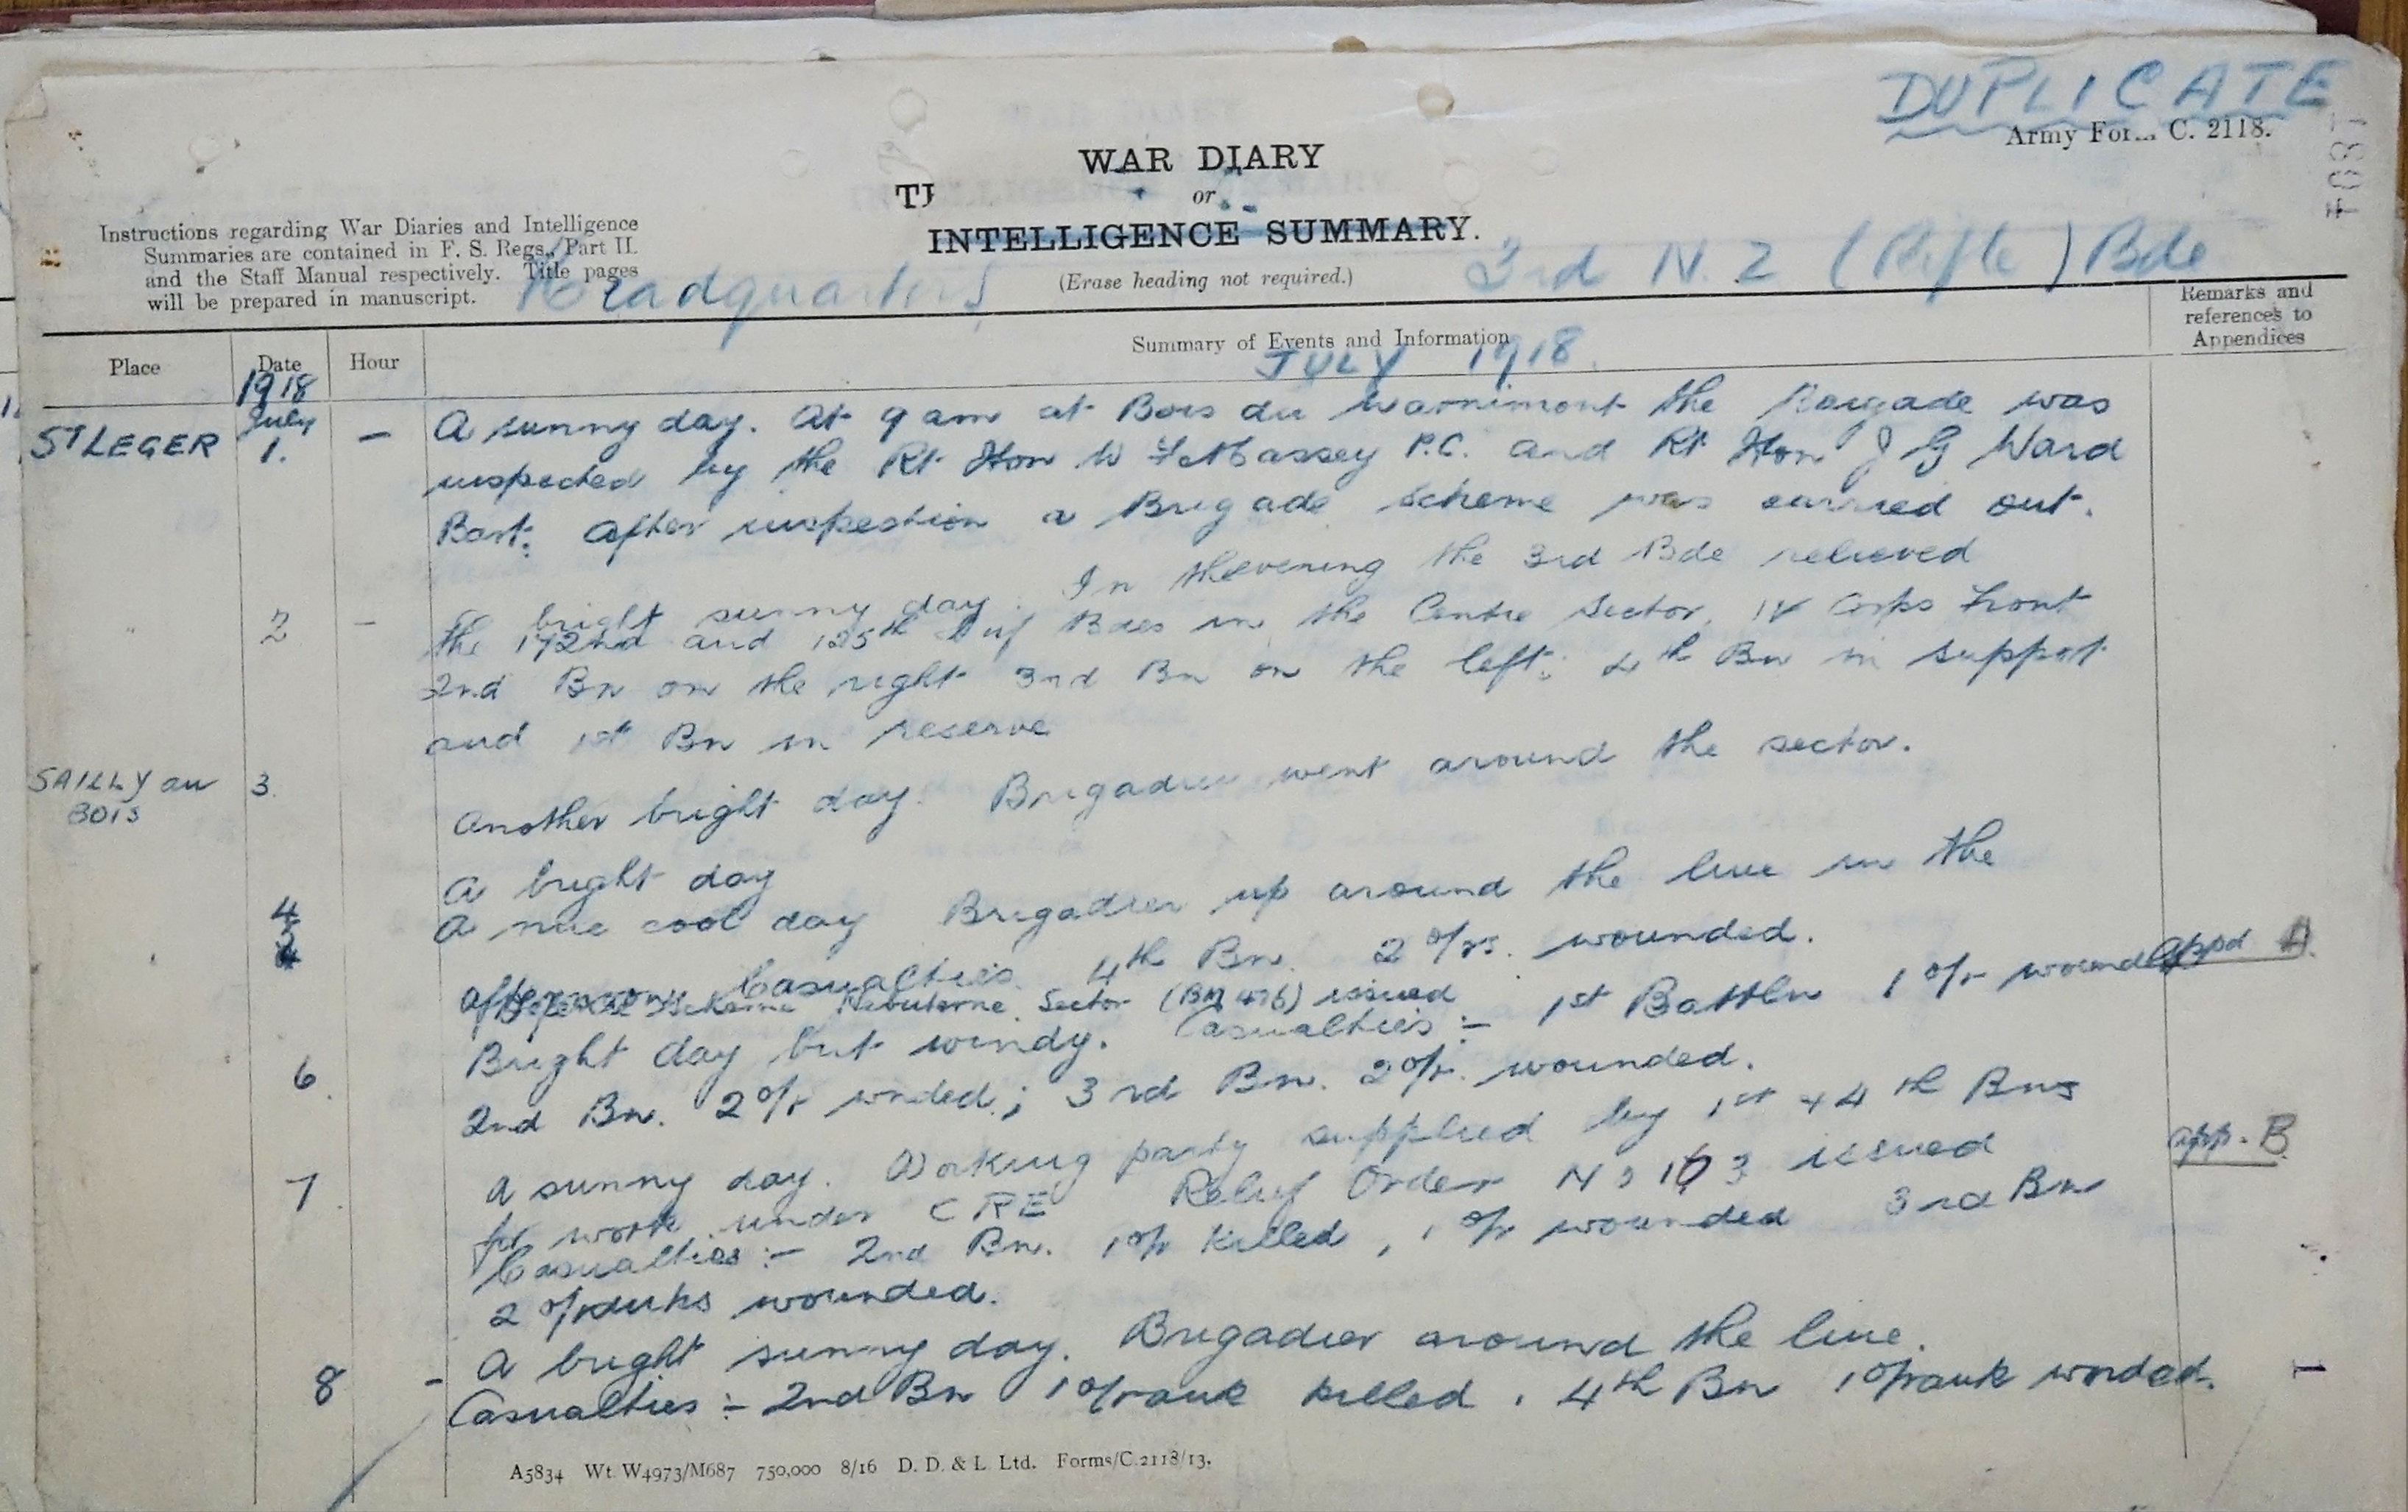 DUPLICATE
Army Form C. 2118.
WAR DIARY
or
INTELLIGENCE SUMMARY.
(Erase heading not required.)
Instructions regarding War Diaries and Intelligence
Summaries are contained in F. S. Regs., Part II.
and the Staff Manual respectively. Title pages
will be prepared in manuscript.
Headquarters 3rd N.Z (Rifle) Bde
Place Date Hour Summary of Events and Information Remarks and references to Appendices
JULY 1918.
1918
July
ST LEGER 1. - A sunny day. At 9 am at Bois du Warnimont the Brigade was
inspected by the Rt Hon W F Massey P.C. and Rt Hon J G Ward
Bart. After inspection a Brigade scheme was carried out.
2 - bright sunny day. In the evening the 3rd Bde relieved
the 172nd and 125th Inf Bdes in the Centre Sector, IV Corps Front
2nd Bn on the right 3rd Bn on the left; 4th Bn in support
and 1st Bn in reserve
SAILLY au BOIS 3. Another bright day. Brigadier went around the sector.
4 A bright day
5 A nice cool day Brigadier up around the line in the
afternoon. Casualties 4th Bn. 2 o/rs. wounded.
Defence Scheme Hebuterne Sector (BM 476) issued appd A.
6. Bright day but windy. Casualties :- 1st Battln 1 o/r wounded
2nd Bn. 2 o/r wnded.; 3rd Bn. 2 o/r. wounded.
7. A sunny day. Working party supplied by 1st + 4th Bns
for work under CRE Relief Order No 163 issued app. B
Casualties :- 2nd Bn. 1 o/r killed, 1 o/r wounded 3rd Bn
2 o/ranks wounded.
8 - A bright sunny day. Brigadier around the line.
Casualties :- 2nd Bn 1 o/rank killed, 4th Bn 1 o/rank wnded.
A5834 Wt. W4973/M687 750,000 8/16 D. D. & L. Ltd. Forms/C.2118/13.